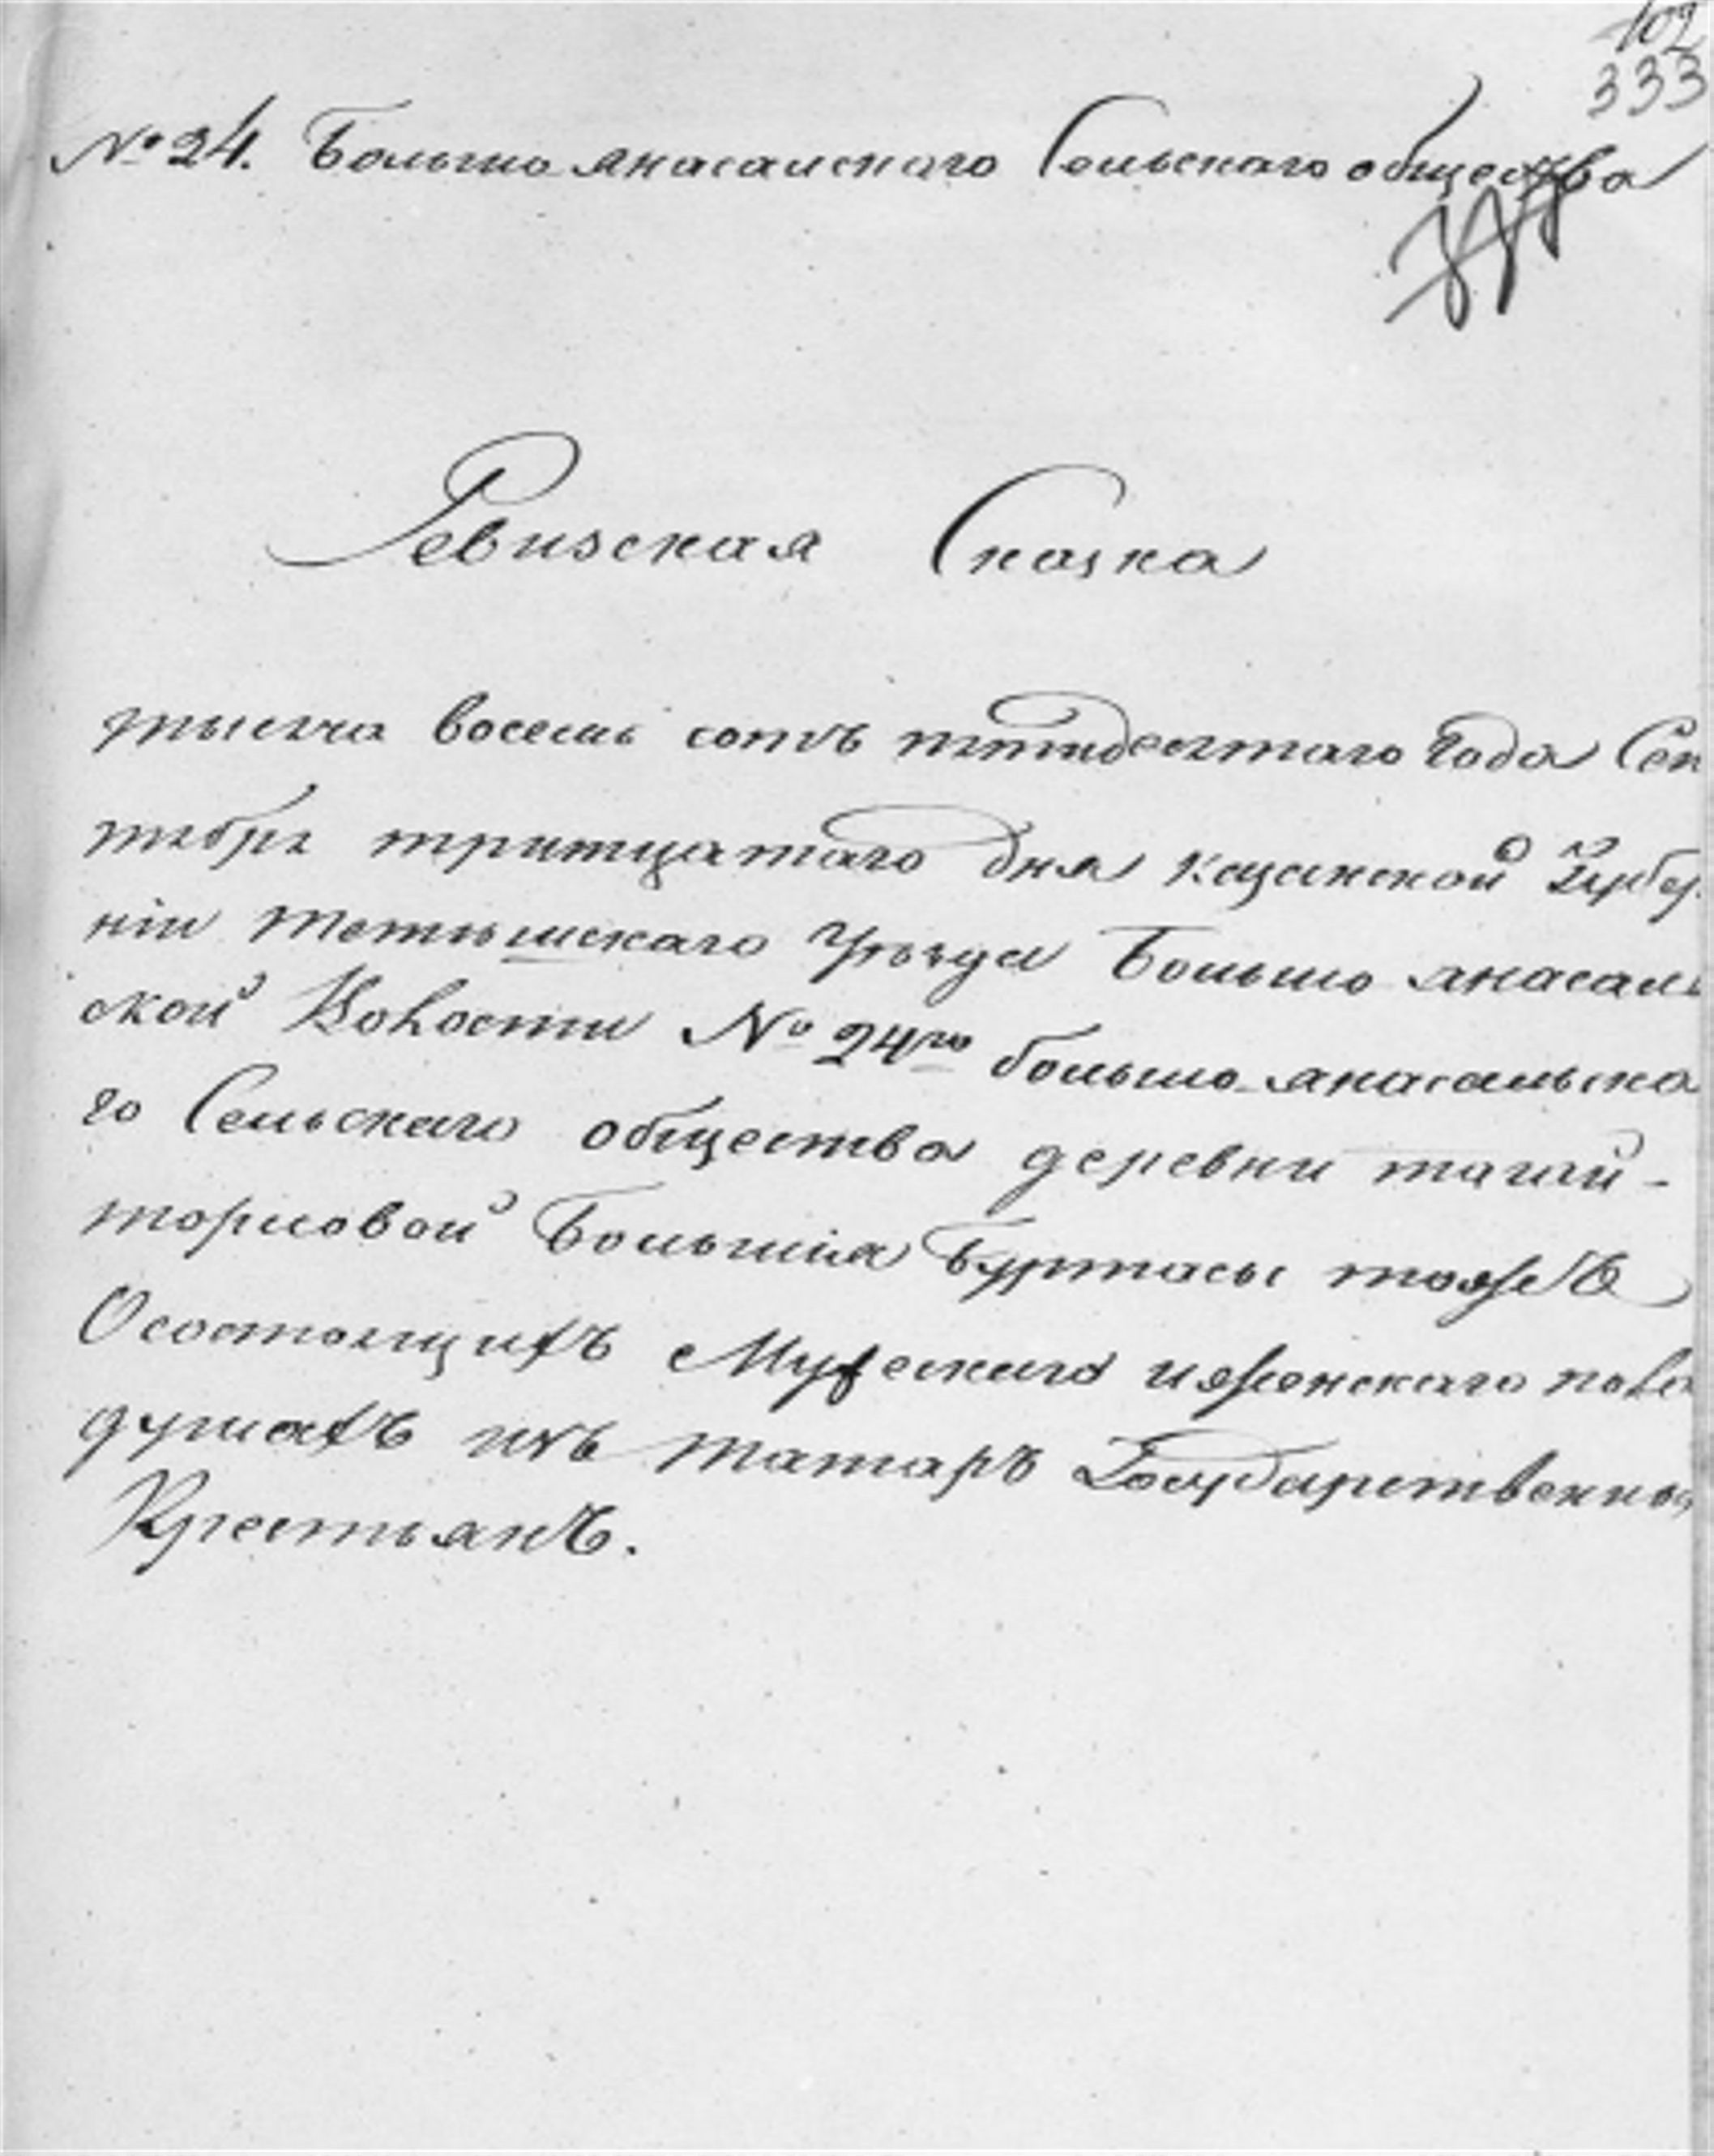 102
333
№ 24. Большо янасалскаго Сельскаго общества
Ревизская Сказка
тысяча восемь сотъ пятидесятаго года Сен
тября тритцатаго дня Казанской Губер
ніи Тетюшскаго Уѣзда Большо янасаль
ской Волости № 24го большо янасальска
го Сельскаго общества деревни
Большія Буртасы тожъ
О состоящихъ Мужескаго и женскаго пола
душахъ изъ татаръ Государственных
Крестьянъ.